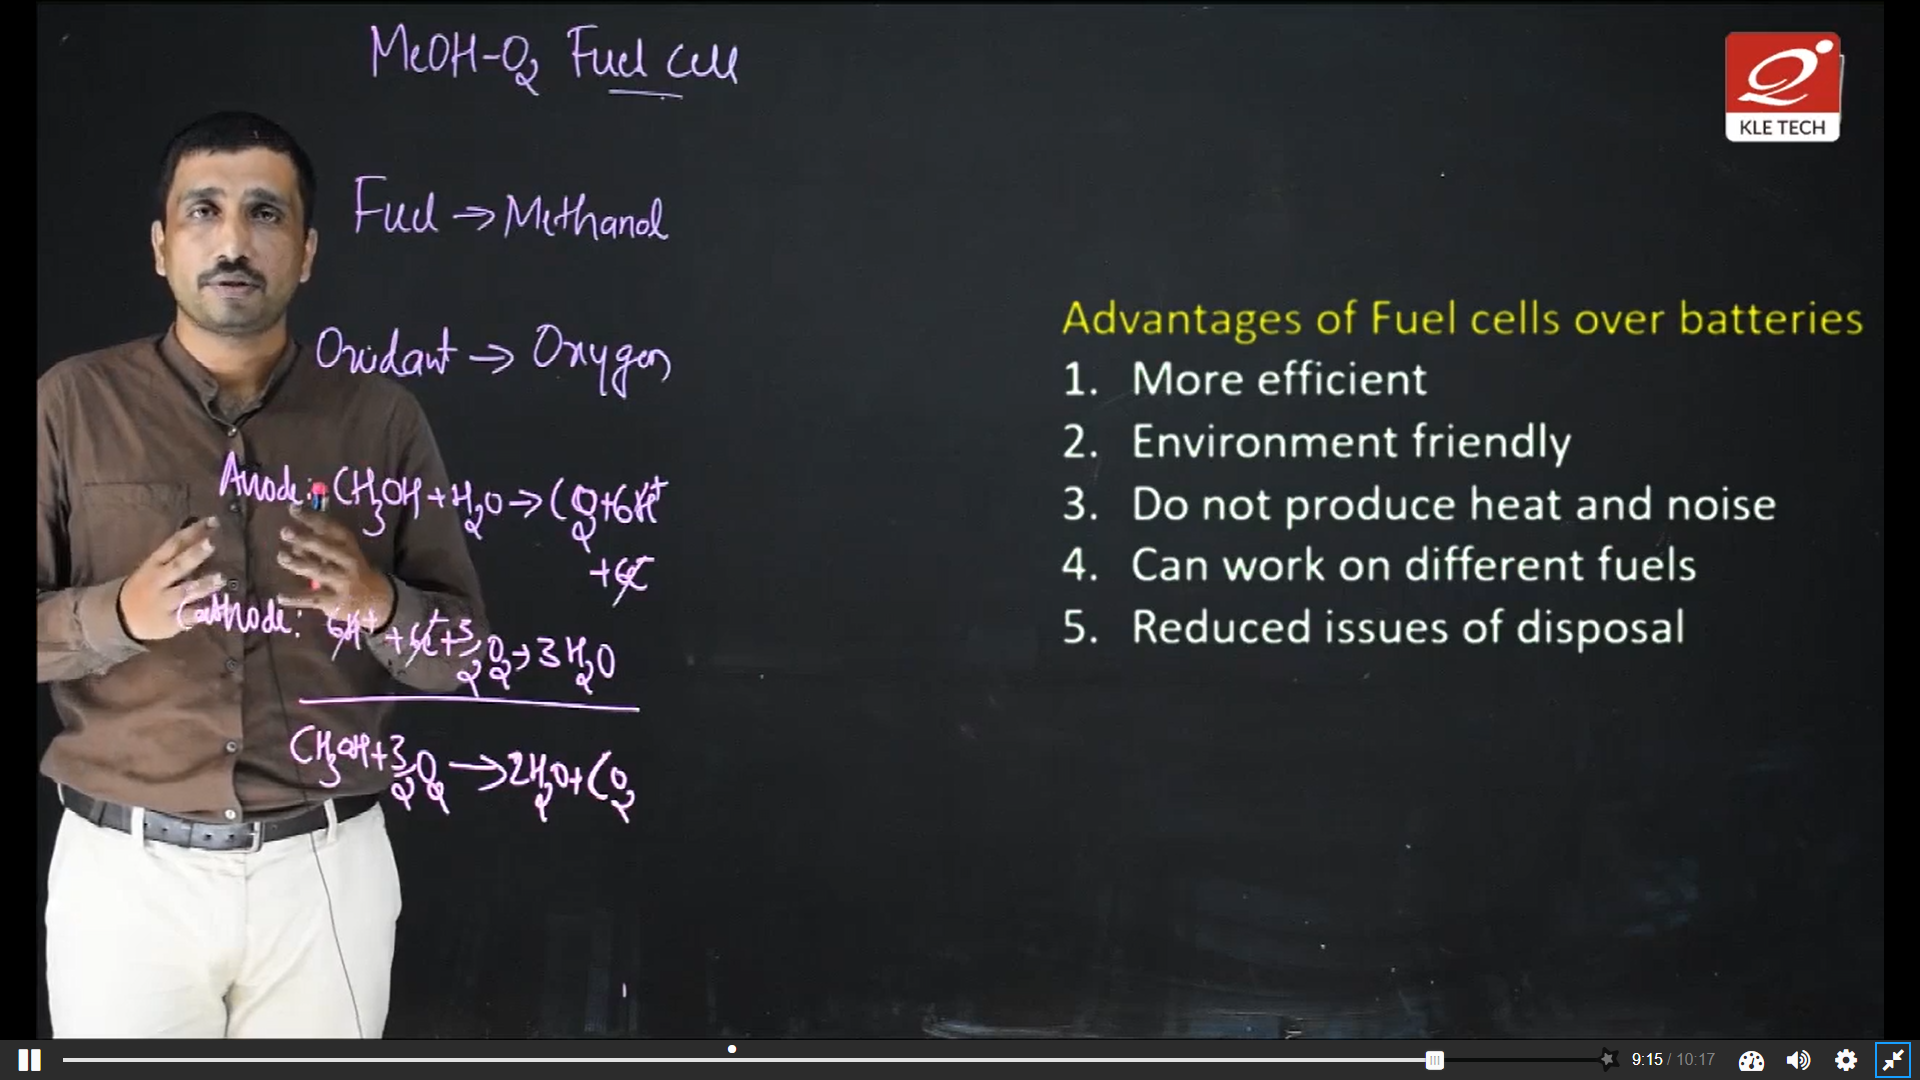 MeOH-O2 Fuel Cell
KLE TECH
Fuel → Methanol
Oxidant → Oxygen
Anode: CH3OH + H2O → CO2 + 6H+
+ 6e-
Cathode: 6H+ + 6e- + 3/2 O2 → 3H2O
CH3OH + 3/2 O2 → 2H2O + CO2
Advantages of Fuel cells over batteries
1. More efficient
2. Environment friendly
3. Do not produce heat and noise
4. Can work on different fuels
5. Reduced issues of disposal
9:15 / 10:17